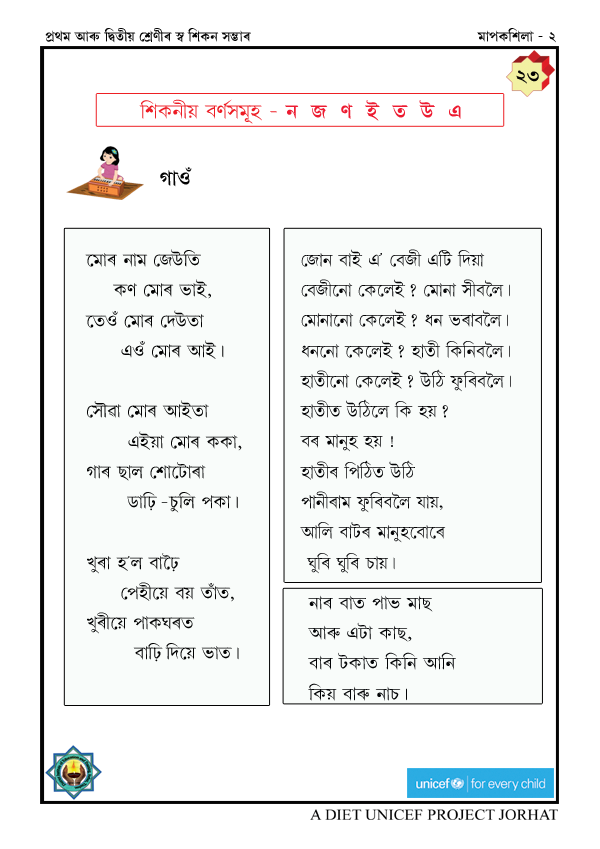 প্ৰথম আৰু দ্বিতীয় শ্ৰেণীৰ স্ব শিকন সম্ভাৰ
মাপকশিলা - ২
২৩
শিকনীয় বৰ্ণসমূহ - ন জ ণ ই ত উ এ
গাওঁ
মোৰ নাম জেউতি
কণ মোৰ ভাই,
তেওঁ মোৰ দেউতা
এওঁ মোৰ আই।
সৌৱা মোৰ আইতা
এইয়া মোৰ ককা,
গাৰ ছাল শোটোৰা
ডাঢ়ি -চুলি পকা।
খুৰা হ'ল বাঢ়ৈ
পেহীয়ে বয় তাঁত,
খুৰীয়ে পাকঘৰত
বাঢ়ি দিয়ে ভাত।
জোন বাই এ' বেজী এটি দিয়া
বেজীনো কেলেই ? মোনা সীবলৈ।
মোনানো কেলেই ? ধন ভৰাবলৈ।
ধননো কেলেই ? হাতী কিনিবলৈ।
হাতীনো কেলেই ? উঠি ফুৰিবলৈ।
হাতীত উঠিলে কি হয় ?
বৰ মানুহ হয় !
হাতীৰ পিঠিত উঠি
পানীৰাম ফুৰিবলৈ যায়,
আলি বাটৰ মানুহবোৰে
ঘুৰি ঘুৰি চায়।
নাৰ বাত পাভ মাছ
আৰু এটা কাছ,
বাৰ টকাত কিনি আনি
কিয় বাৰু নাচ।
unicef for every child
A DIET UNICEF PROJECT JORHAT